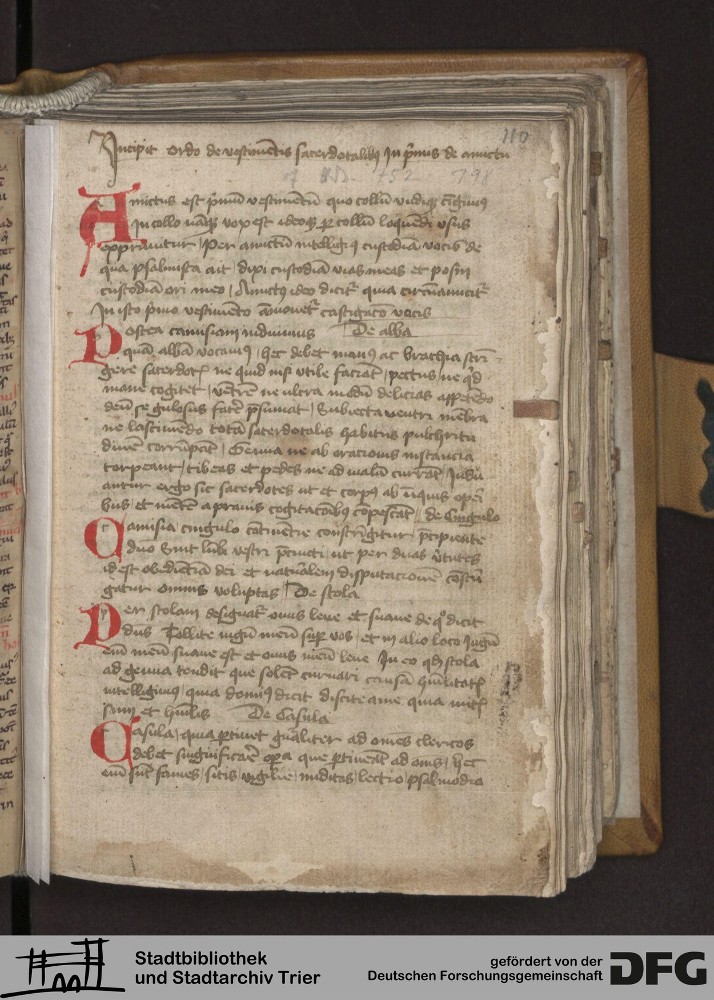 110
Incipit ordo de vestimentis sacerdotalibus In primis de amictu
752 798
Amictus est primum vestimentum quo collum undique cingimus
In collo namque vox est ideoque per collum loquendi usus
exprimitur / Per amictum intelligimus custodiam vocis de
qua psalmista ait / dixi custodiam vias meas et posui
custodiam ori meo / Amictus ideo dicitur quia circumamicitur
In isto primo vestimento castigatio vocis
Postea camisiam induimus De alba
quam albam vocamus / hec debet manus ac brachia stri-
gere sacerdotis ne quid nisi utile faciat / pectus ne quid
mane cogitet / ventrem ne ultra modum delicias appetendo
deum se gulosus facere presumat / Subiecta ventri membra
ne lasciviendo totam sacerdotalis habitus pulchritu
dinem corrumpant / Genua ne ab oracionis instancia
torpeant / tibeas et pedes ne ad malum currant / Indu
antur ergo sic sacerdotes ut et corpus ab iniquis operi
bus et mentem a pravis cogitacionibus compescant / de Cingulo
Camisia cingulo constringitur precipiente
duo Sint lumbi vestri precincti / ut per duas virtutes
id est obedienciam dei et naturalem disputacionem constrin
gatur omnis voluptas De stola
Per stolam designatur onus leve et suave de quo dicit
dominus Tollite iugum meum super vos / et in alio loco Iugum
enim meum suave est et onus meum leve In eo quod stola
ad genua tendit que solent curvari causa humilitatis
intelligimus / quia dominus dicit discite a me quia mitis
sum et humilis De Casula
Casula / quia pertinet generaliter ad omnes clericos
debet significare opera que pertinent ad omnes / hec
enim sunt fames / sitis / vigilie / nuditas / lectio / psalmodia
Stadtbibliothek
und Stadtarchiv Trier
gefördert von der
Deutschen Forschungsgemeinschaft
DFG